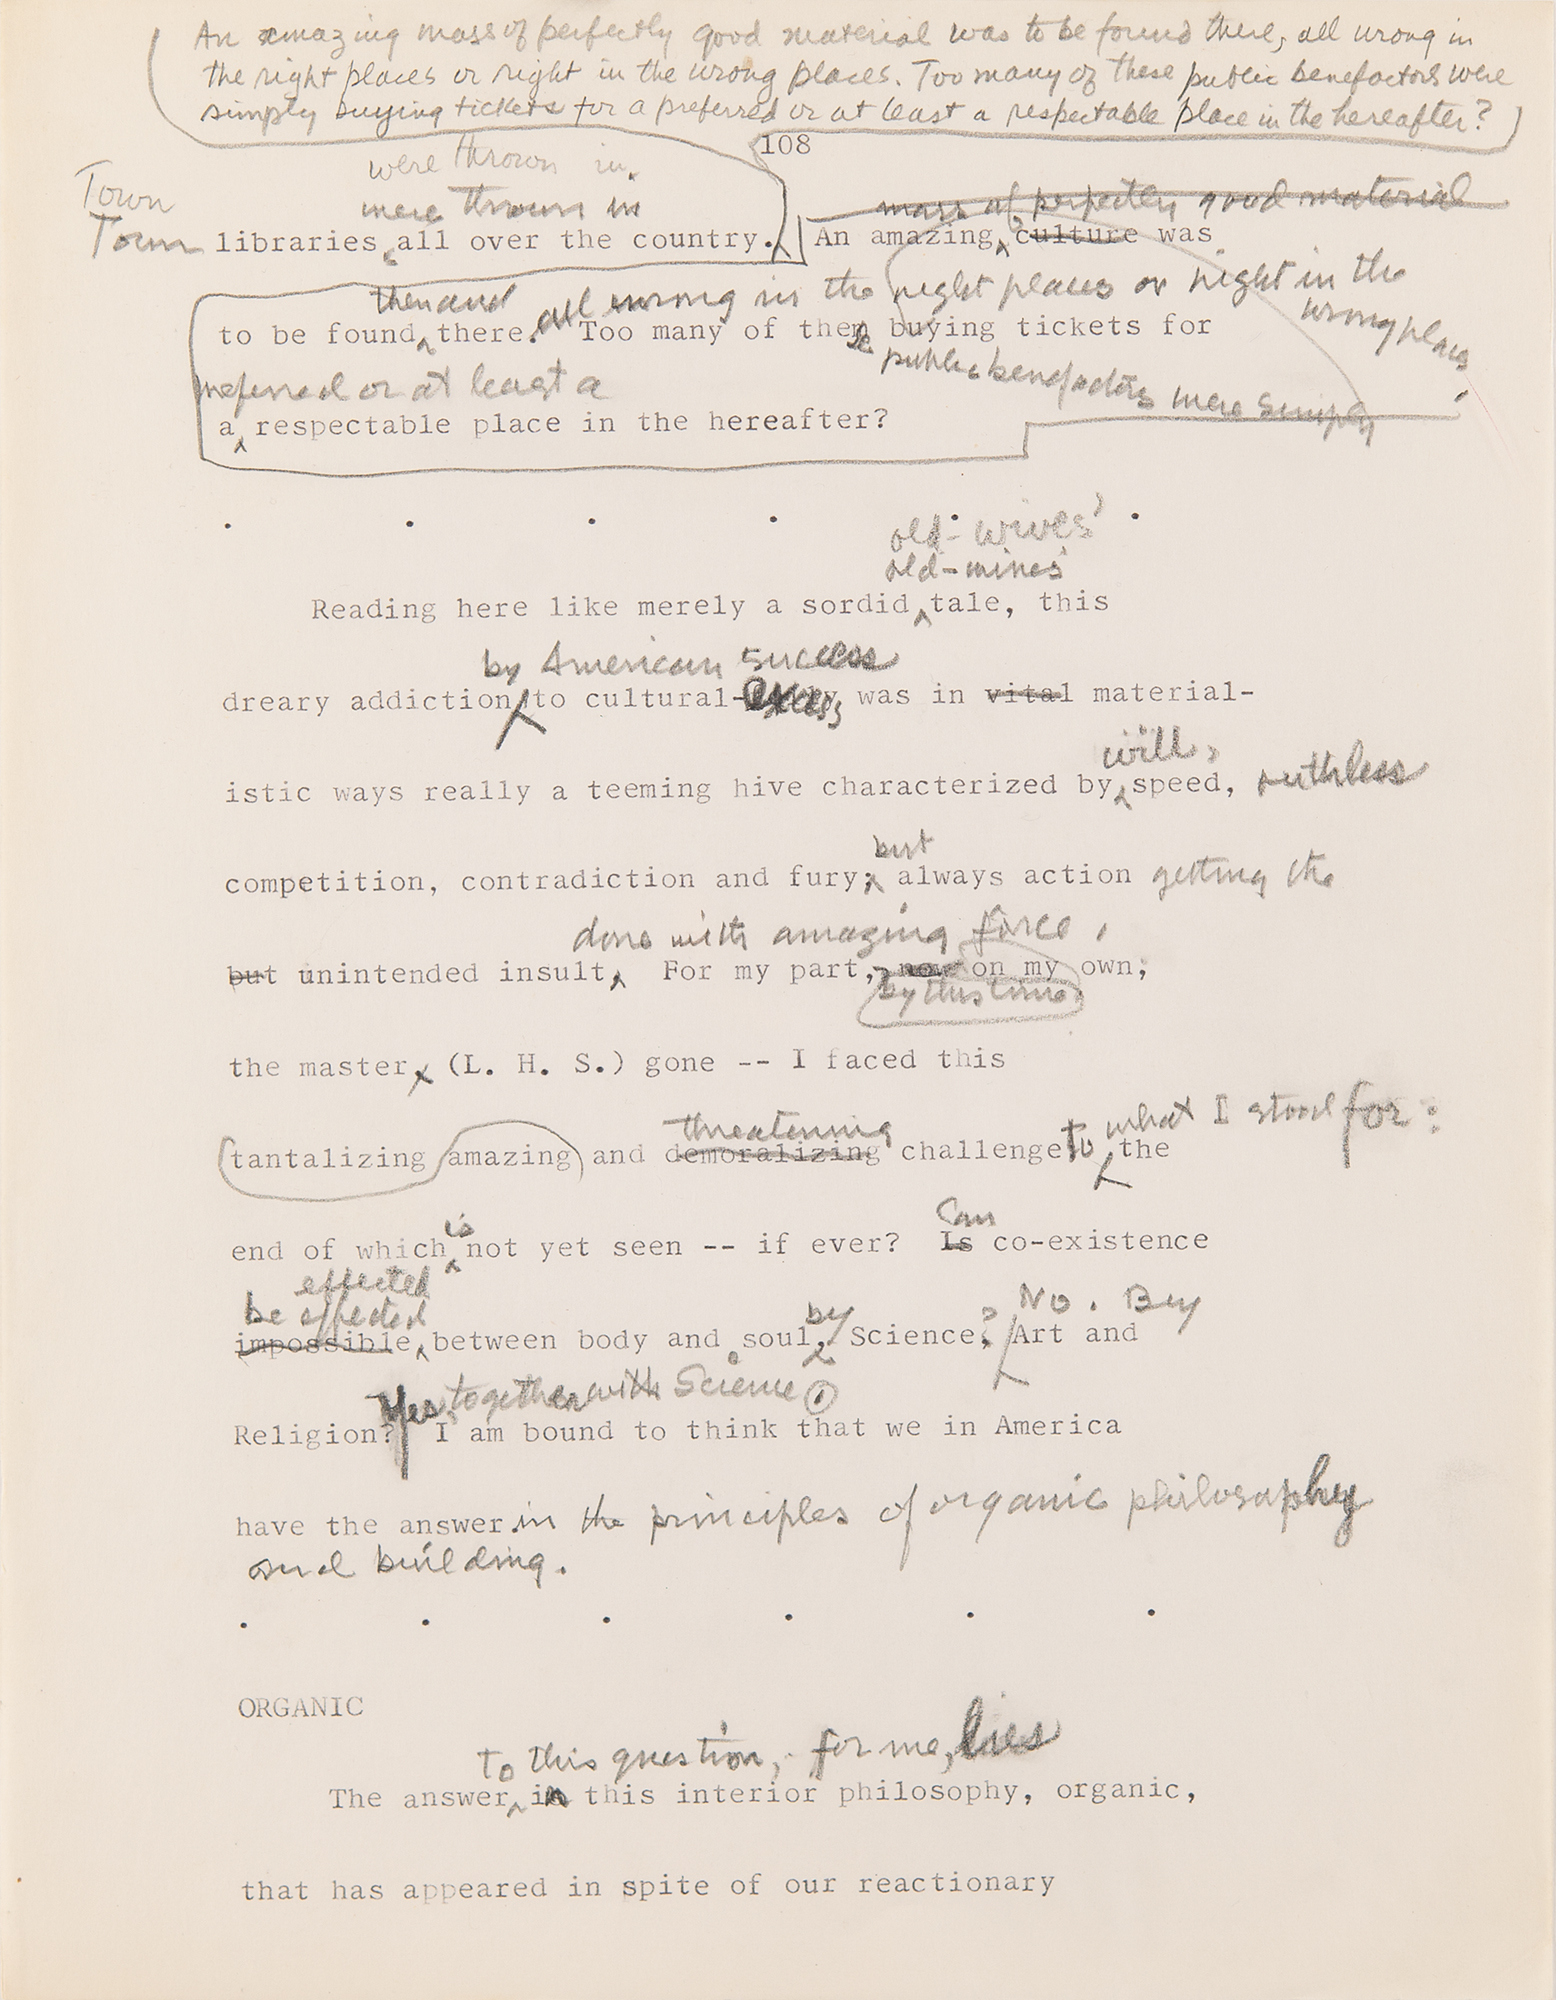 An amazing mass of perfectly good material was to be found there, all wrong in
the right places or right in the wrong places. Too many of these public benefactors were
simply buying tickets for a preferred or at least a respectable place in the hereafter?
108
were thrown in.
Town
were thrown in
mass of perfectly good material
Town libraries all over the country. An amazing culture was
then and all wrong in the right places or right in the
wrong places.
to be found there. Too many of these buying tickets for
public benefactors were simply
preferred or at least a
a respectable place in the hereafter?
. . . . . .
old-wives'
old-wives'
Reading here like merely a sordid tale, this
by American success
dreary addiction, to cultural-excess, was in vital material-
will,
istic ways really a teeming hive characterized by speed, ruthless
but
competition, contradiction and fury; always action getting the
done with amazing force,
but unintended insult. For my part, now on my own;
by this time
the master (L. H. S.) gone -- I faced this
threatening to what I stood for:
tantalizing amazing and demoralizing challenge the
is Can
end of which not yet seen -- if ever? Is co-existence
effected
be effected by ? No. By
impossible, between body and soul, Science; Art and
Yes, together with Science.
Religion? I am bound to think that we in America
have the answer in the principles of organic philosophy
and building.
. . . . . .
ORGANIC
to this question, for me, lies
The answer in this interior philosophy, organic,
that has appeared in spite of our reactionary